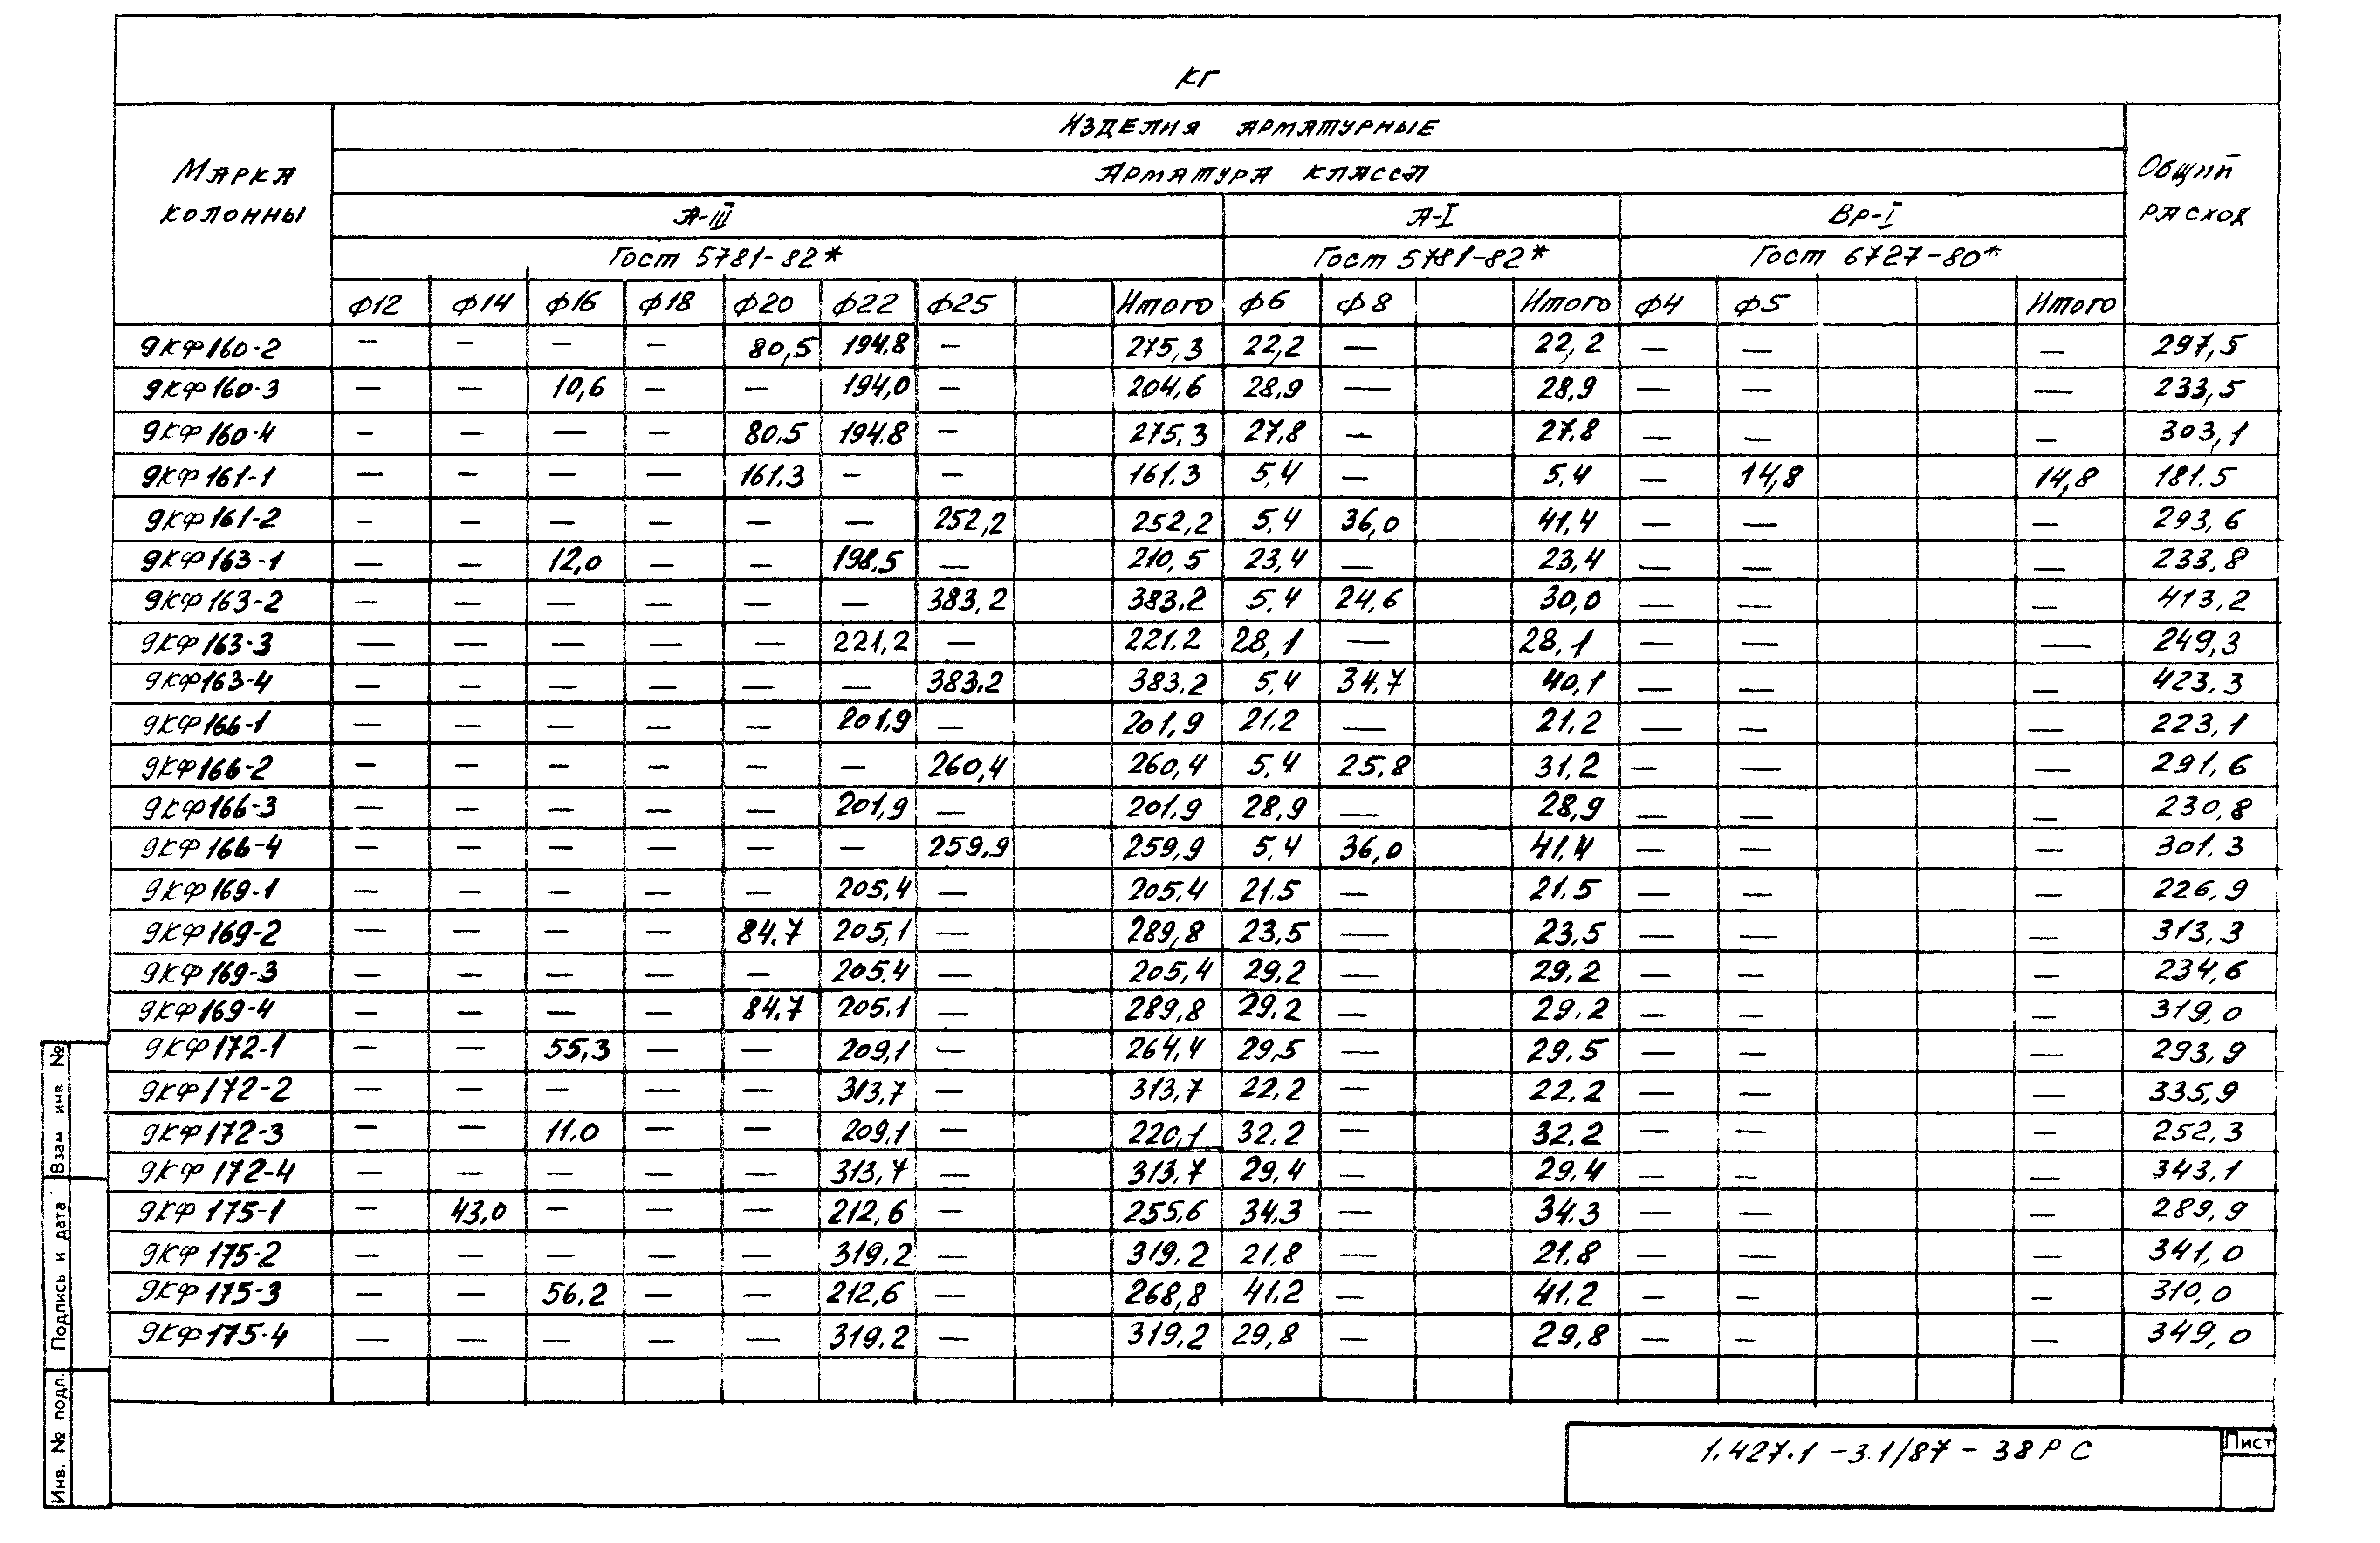 кг
Марка колонны
Изделия арматурные
Общий расход
Арматура класса
А-III А-I Вр-I
Гост 5781-82* Гост 5781-82* Гост 6727-80*
ф12 ф14 ф16 ф18 ф20 ф22 ф25 Итого ф6 ф8 Итого ф4 ф5 Итого
9КФ160-2 — — — — 80,5 194.8 — 275,3 22,2 — 22,2 — — — 297,5
9КФ160-3 — — 10,6 — — 194,0 — 204,6 28,9 — 28,9 — — — 233,5
9КФ160-4 — — — — 80.5 194.8 — 275,3 27,8 — 27.8 — — — 303,1
9КФ161-1 — — — — 161.3 — — 161.3 5,4 — 5.4 — 14,8 14,8 181.5
9КФ161-2 — — — — — — 252,2 252,2 5.4 36,0 41,4 — — — 293,6
9КФ163-1 — — 12,0 — — 198,5 — 210,5 23,4 — 23,4 — — — 233,8
9КФ163-2 — — — — — — 383,2 383.2 5,4 24,6 30,0 — — — 413,2
9КФ163-3 — — — — — 221,2 — 221.2 28,1 — 28,1 — — — 249,3
9КФ163-4 — — — — — — 383.2 383.2 5,4 34.7 40,1 — — — 423.3
9КФ166-1 — — — — — 201,9 — 201,9 21.2 — 21.2 — — — 223,1
9КФ166-2 — — — — — — 260,4 260,4 5.4 25.8 31.2 — — — 291,6
9КФ166-3 — — — — — 201,9 — 201,9 28,9 — 28,9 — — — 230,8
9КФ166-4 — — — — — — 259,9 259,9 5,4 36,0 41.4 — — — 301.3
9КФ169-1 — — — — — 205,4 — 205,4 21.5 — 21.5 — — — 226,9
9КФ169-2 — — — — 84.7 205,1 — 289,8 23,5 — 23,5 — — — 313,3
9КФ169-3 — — — — — 205.4 — 205,4 29.2 — 29,2 — — — 234,6
9КФ169-4 — — — — 84.7 205.1 — 289,8 29.2 — 29,2 — — — 319,0
9КФ172-1 — — 55,3 — — 209,1 — 264,4 29,5 — 29.5 — — — 293,9
9КФ172-2 — — — — — 313,7 — 313,7 22,2 — 22,2 — — — 335,9
9КФ172-3 — — 11.0 — — 209,1 — 220,1 32.2 — 32.2 — — — 252,3
9КФ172-4 — — — — — 313,7 — 313.7 29,4 — 29,4 — — — 343,1
9КФ175-1 — 43,0 — — — 212,6 — 255,6 34.3 — 34.3 — — — 289,9
9КФ175-2 — — — — — 319.2 — 319.2 21.8 — 21.8 — — — 341,0
9КФ175-3 — — 56.2 — — 212,6 — 268,8 41.2 — 41.2 — — — 310,0
9КФ175-4 — — — — — 319.2 — 319,2 29,8 — 29,8 — — — 349,0
Инв. № подл. Подпись и дата Взам инв №
1.427.1-3.1/87-38РС
Лист